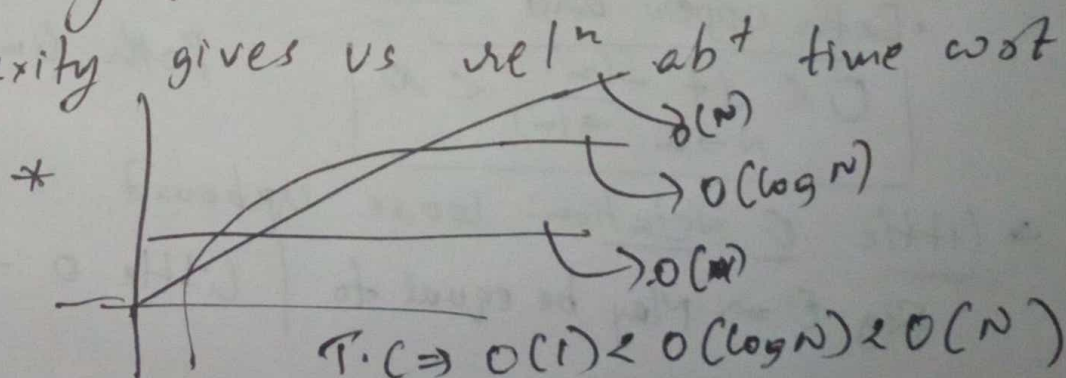 exity gives us relⁿ abᵗ time cost
* O(N)
O(log N)
T.C ⇒ O(1) < O(log N) < O(N)